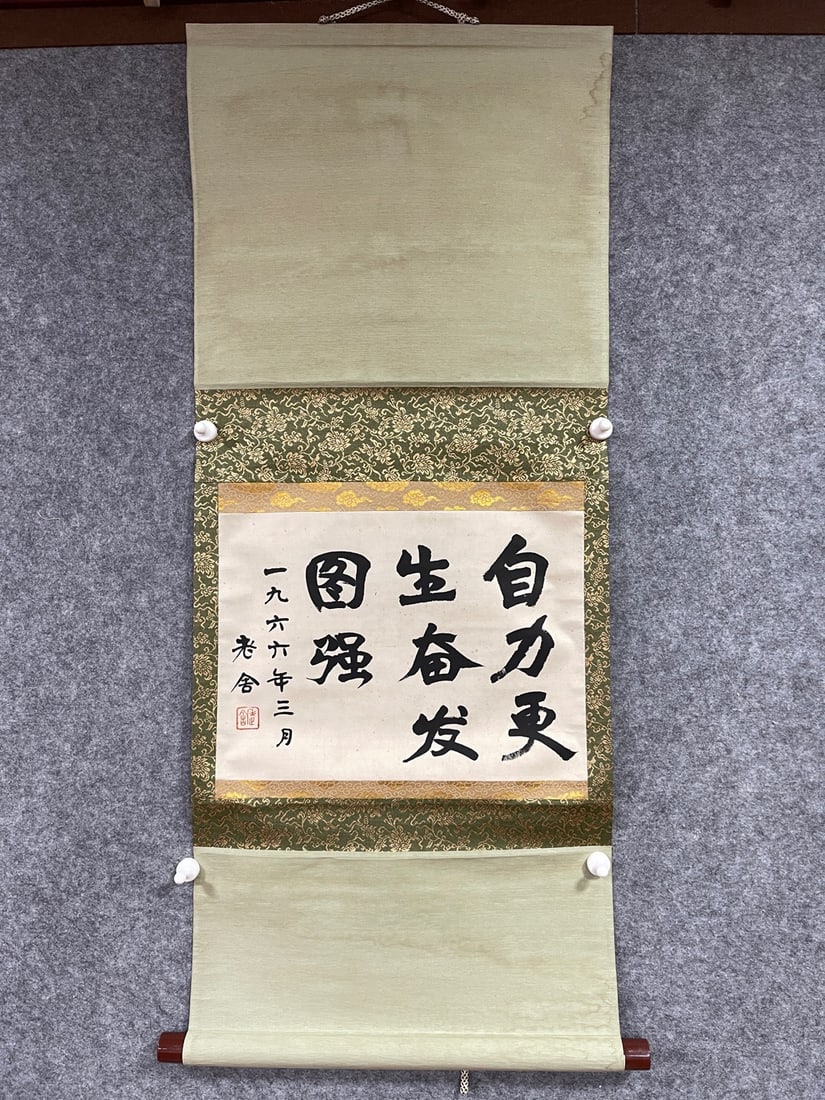 自力更
生奋发
图强
一九六六年三月
老舍